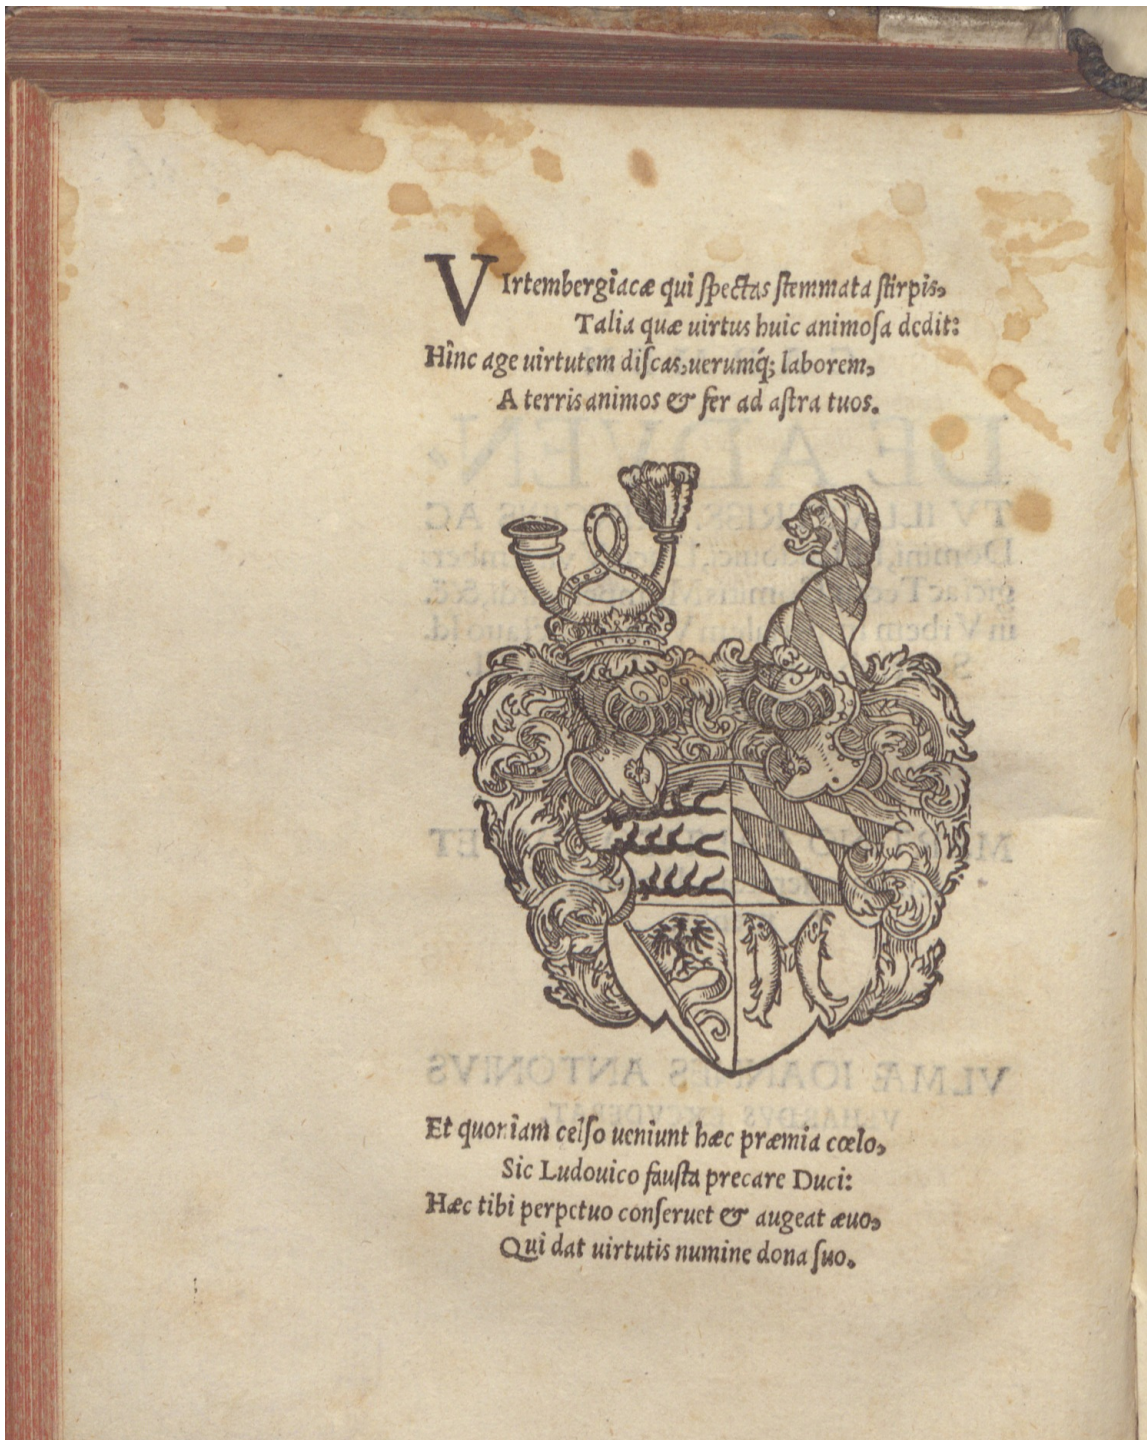 VIrtembergiacæ qui ſpectas ſtemmata ſtirpis,
Talia quæ uirtus huic animoſa dedit:
Hinc age uirtutem diſcas, uerumq́; laborem,
A terris animos & fer ad aſtra tuos.
Et quoniam celſo ueniunt hæc præmia cœlo,
Sic Ludouico fauſta precare Duci:
Hæc tibi perpetuo conſeruet & augeat æuo,
Qui dat uirtutis numine dona ſuo.